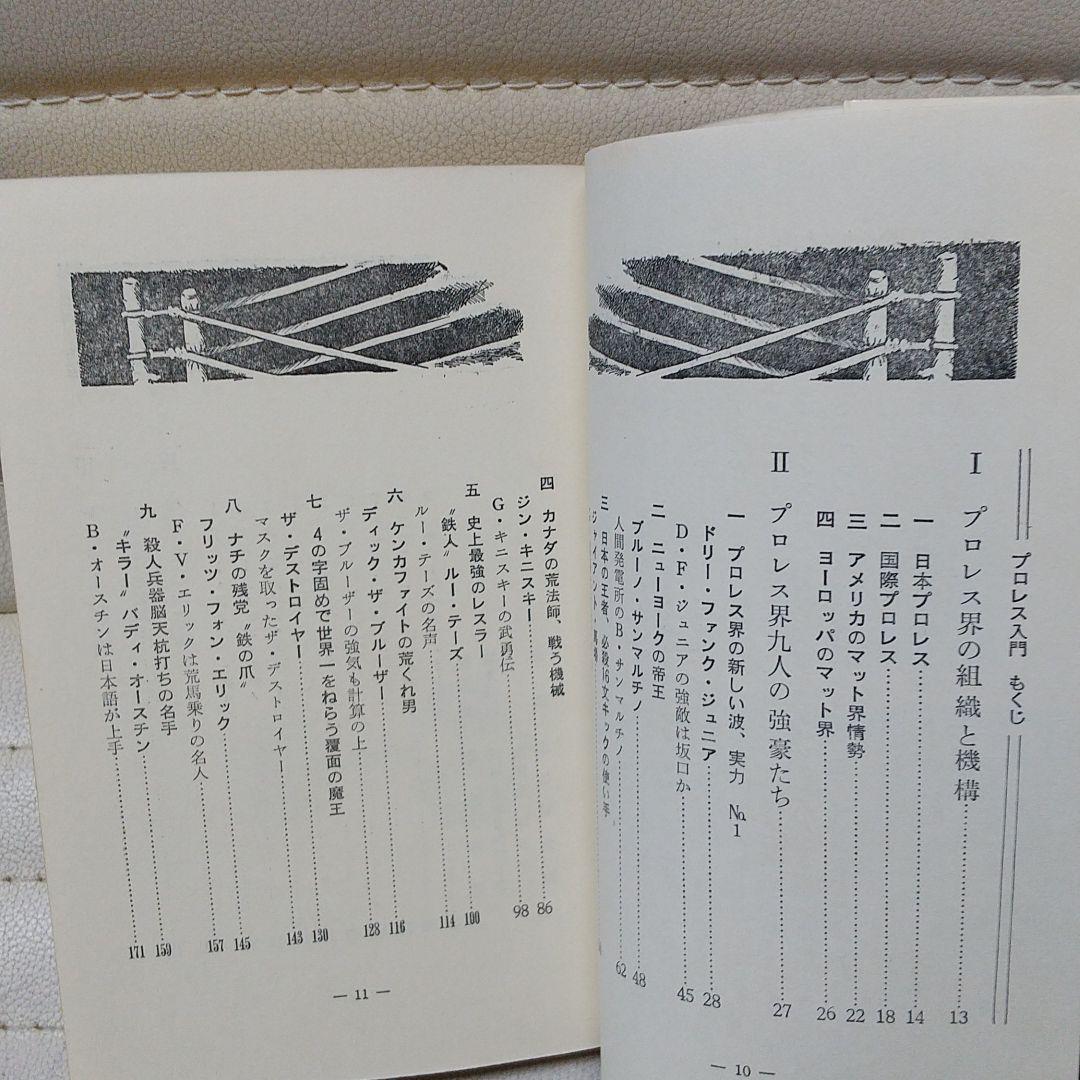 プロレス入門 もくじ
I プロレス界の組織と機構……13
一 日本プロレス……14
二 国際プロレス……18
三 アメリカのマット界情勢……22
四 ヨーロッパのマット界……26
II プロレス界九人の強豪たち……27
一 プロレス界の新しい波、実力 No.1
ドリー・ファンク・ジュニア……28
D・F・ジュニアの強敵は坂口か……45
二 ニューヨークの帝王
ブルーノ・サンマルチノ……48
人間発電所のB・サンマルチノ……62
三 日本の王者、必殺16文キックの使い手
ジャイアント・馬場
— 10 —
四 カナダの荒法師、戦う機械
ジン・キニスキー……86
G・キニスキーの武勇伝……98
五 史上最強のレスラー
“鉄人”ルー・テーズ……100
ルー・テーズの名声……114
六 ケンカファイトの荒くれ男
ディック・ザ・ブルーザー……116
ザ・ブルーザーの強気も計算の上……128
七 4の字固めで世界一をねらう覆面の魔王
ザ・デストロイヤー……130
マスクを取ったザ・デストロイヤー……143
八 ナチの残党“鉄の爪”
フリッツ・フォン・エリック……145
F・V・エリックは荒馬乗りの名人……157
九 殺人兵器脳天杭打ちの名手
“キラー”バディ・オースチン……159
B・オースチンは日本語が上手……171
— 11 —